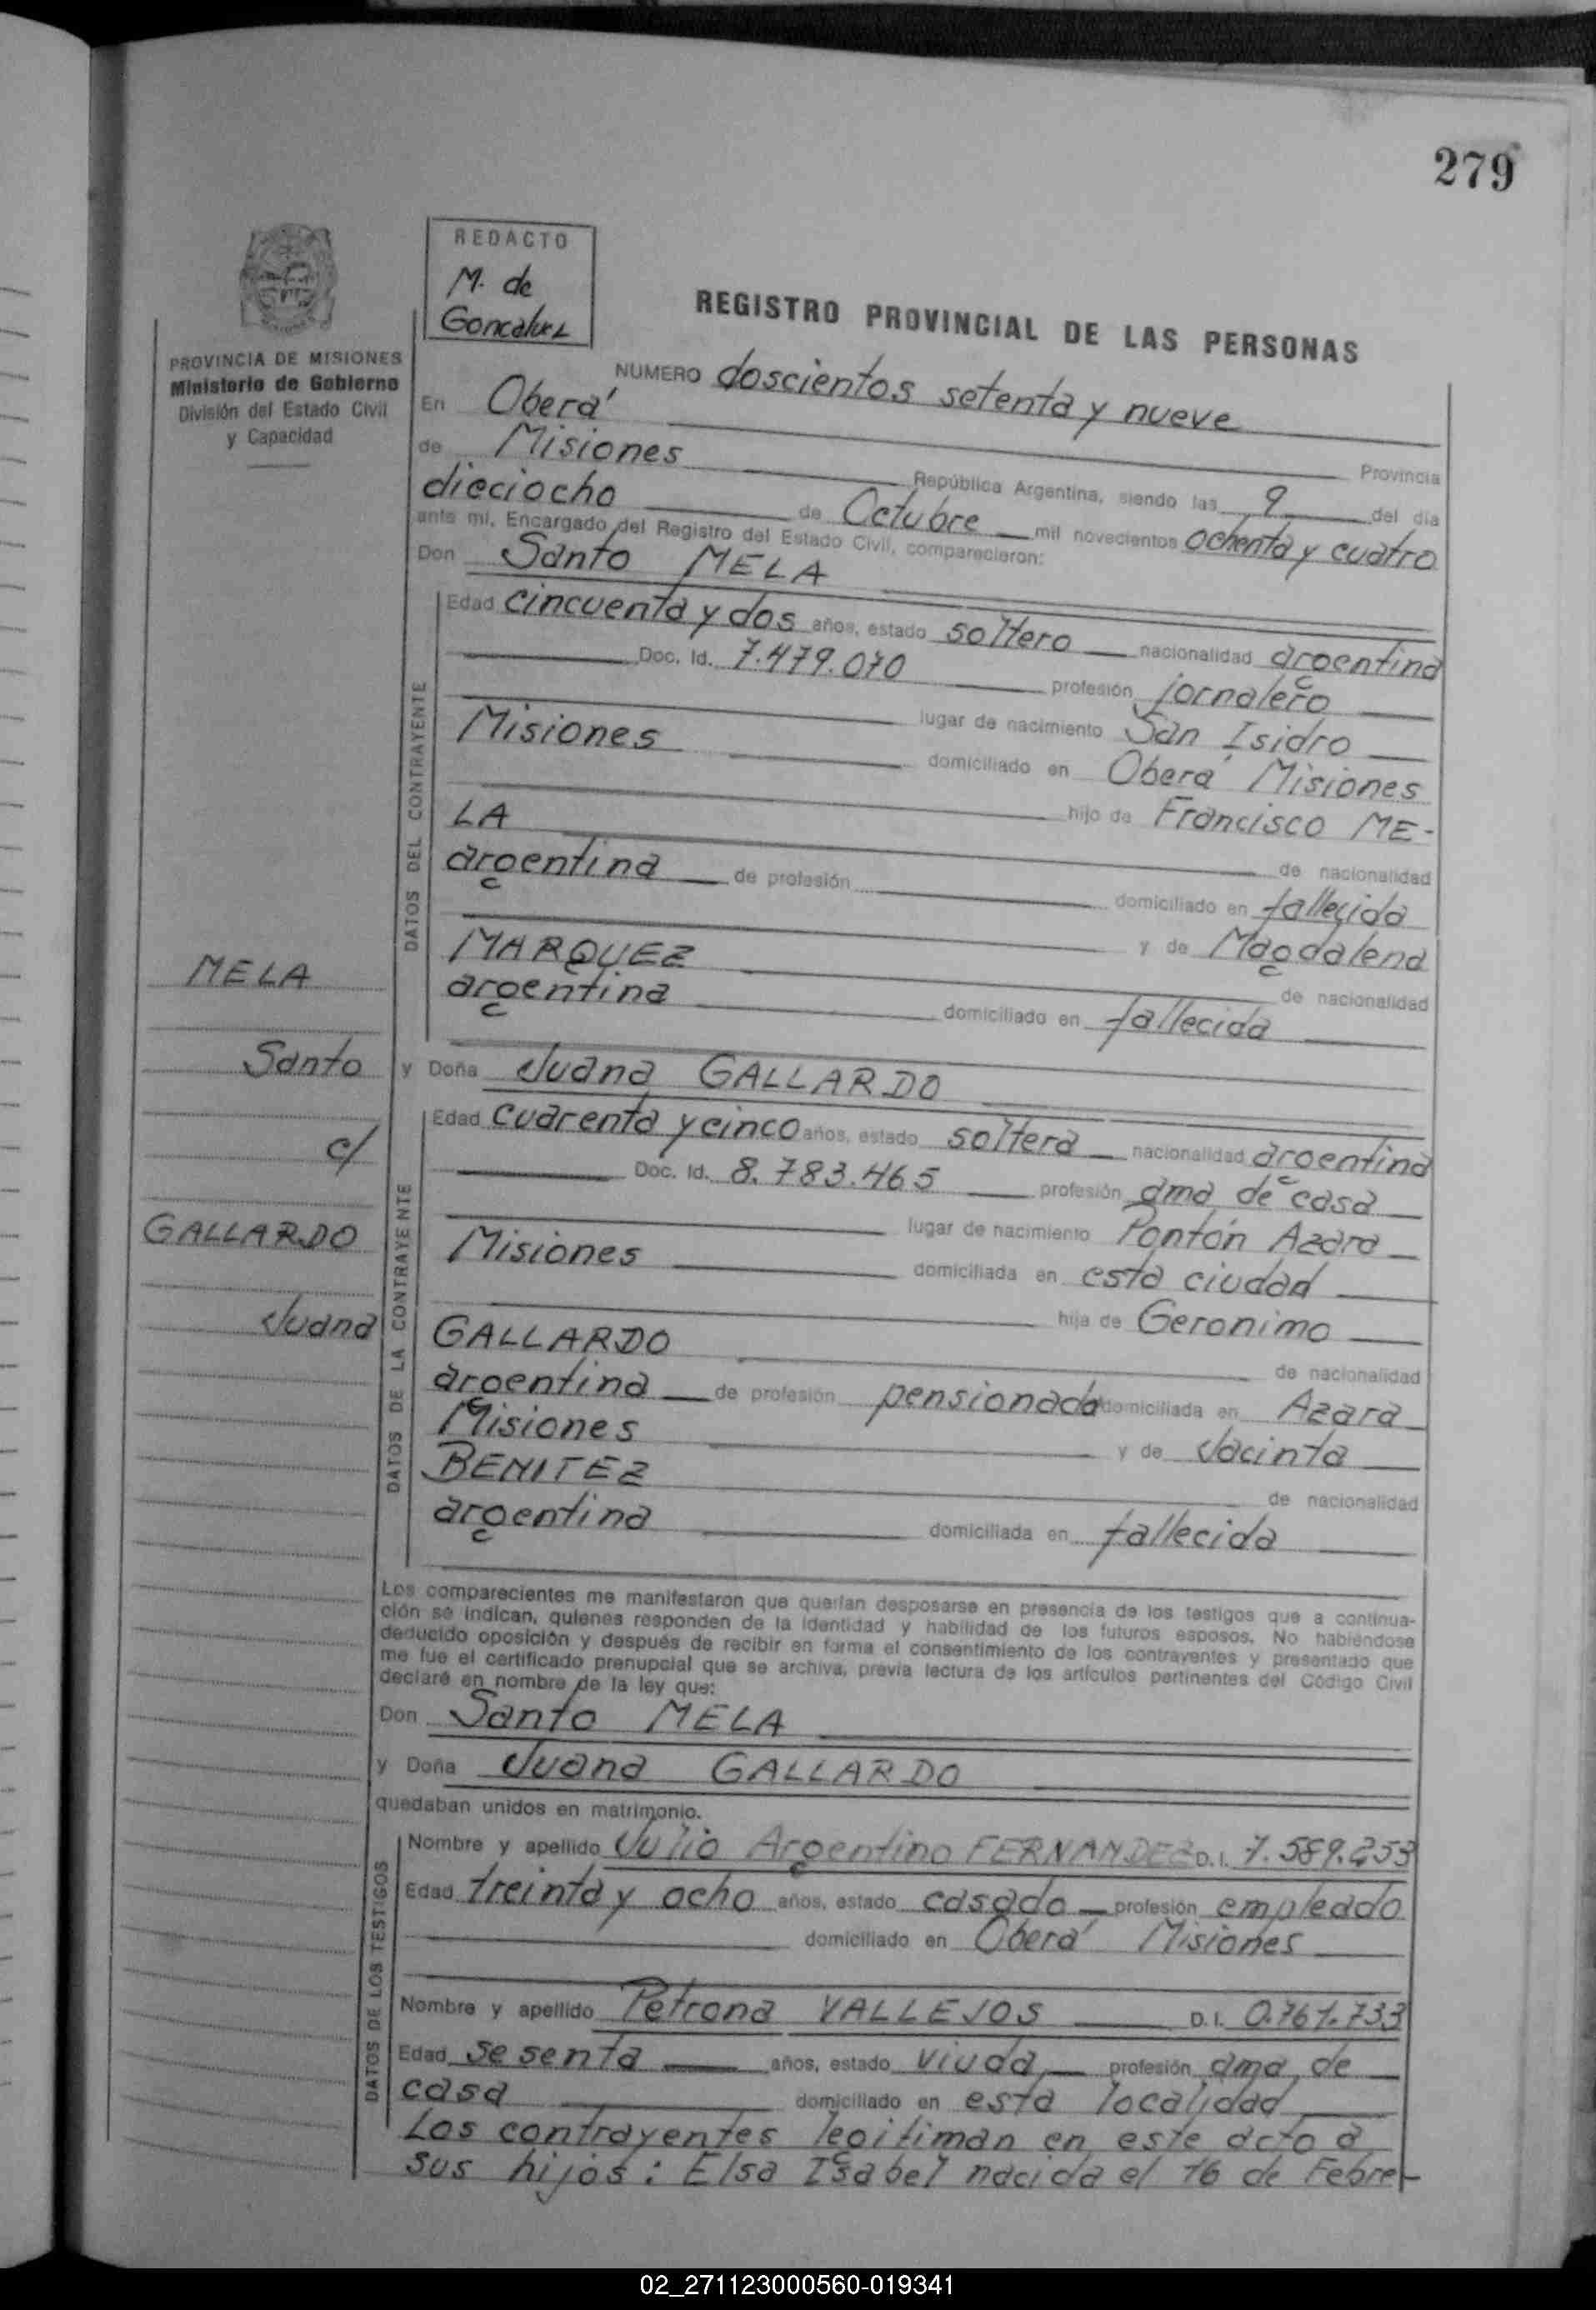 279
REDACTO
M. de
Goncalvez
REGISTRO PROVINCIAL DE LAS PERSONAS
PROVINCIA DE MISIONES
Ministerio de Gobierno
División del Estado Civil
y Capacidad
NUMERO doscientos setenta y nueve
En Oberá Provincia
de Misiones República Argentina, siendo las 9 del día
dieciocho de Octubre mil novecientos ochenta y cuatro
ante mi, Encargado del Registro del Estado Civil, comparecieron:
Don Santo MELA
DATOS DEL CONTRAYENTE
Edad cincuenta y dos años, estado soltero nacionalidad argentina
Doc. Id. 7.479.070 profesión jornalero
lugar de nacimiento San Isidro
Misiones domiciliado en Oberá Misiones
hijo de Francisco ME-
LA de nacionalidad
argentina de profesión domiciliado en fallecido
y de Magdalena
MARQUEZ de nacionalidad
argentina domiciliado en fallecida
MELA
Santo
c/
GALLARDO
Juana
y Doña Juana GALLARDO
DATOS DE LA CONTRAYENTE
Edad cuarenta y cinco años, estado soltera nacionalidad argentina
Doc. Id. 8.783.465 profesión ama de casa
lugar de nacimiento Pontón Azara
Misiones domiciliada en esta ciudad
hija de Geronimo
GALLARDO de nacionalidad
argentina de profesión pensionado domiciliada en Azara
Misiones y de Jacinta
BENITEZ de nacionalidad
argentina domiciliada en fallecida
Los comparecientes me manifestaron que querían desposarse en presencia de los testigos que a continua-
ción se indican, quienes responden de la identidad y habilidad de los futuros esposos. No habiéndose
deducido oposición y después de recibir en forma el consentimiento de los contrayentes y presentado que
me fue el certificado prenupcial que se archiva, previa lectura de los artículos pertinentes del Código Civil
declaré en nombre de la ley que:
Don Santo MELA
y Doña Juana GALLARDO
quedaban unidos en matrimonio.
DATOS DE LOS TESTIGOS
Nombre y apellido Julio Argentino FERNANDEZ D.I. 7.589.253
Edad treinta y ocho años, estado casado profesión empleado
domiciliado en Oberá Misiones
Nombre y apellido Petrona VALLEJOS D.I. 0.761.733
Edad sesenta años, estado viuda profesión ama de
casa domiciliado en esta localidad
Los contrayentes legitiman en este acto a
sus hijos: Elsa Isabel nacida el 16 de Febre-
02_271123000560-019341